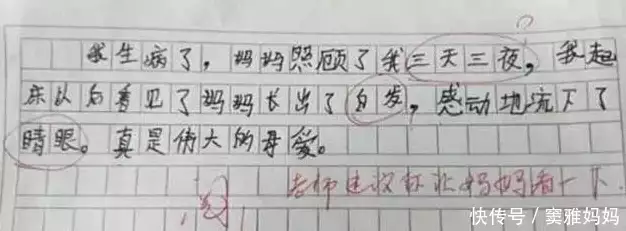 我生病了，妈妈照顾了我三天三夜，我起
床以后看见了妈妈长出了白发，感动地流下了
晴眼。真是伟大的母爱。
老师建议你让妈妈看一下
快传号／窦雅妈妈